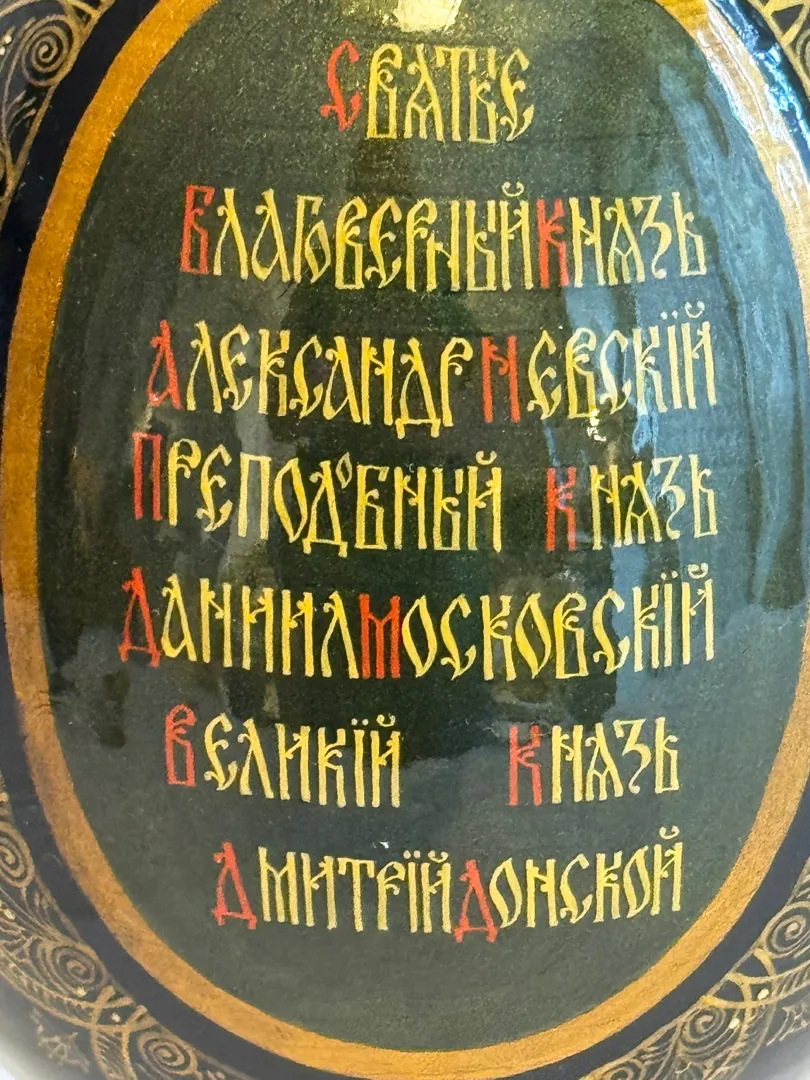 Святые
Благоверный Кнѧзь
Александр Невскїй
Преподобный Кнѧзь
Даниил Московскїй
Великїй Кнѧзь
Дмитрїй Донской